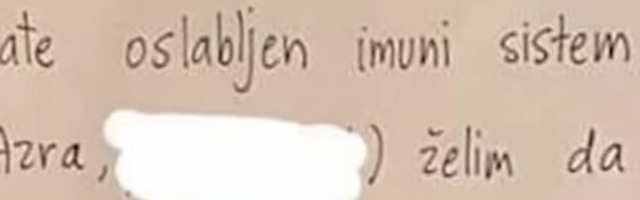 ate oslabljen imuni sistem
Azra, ) želim da